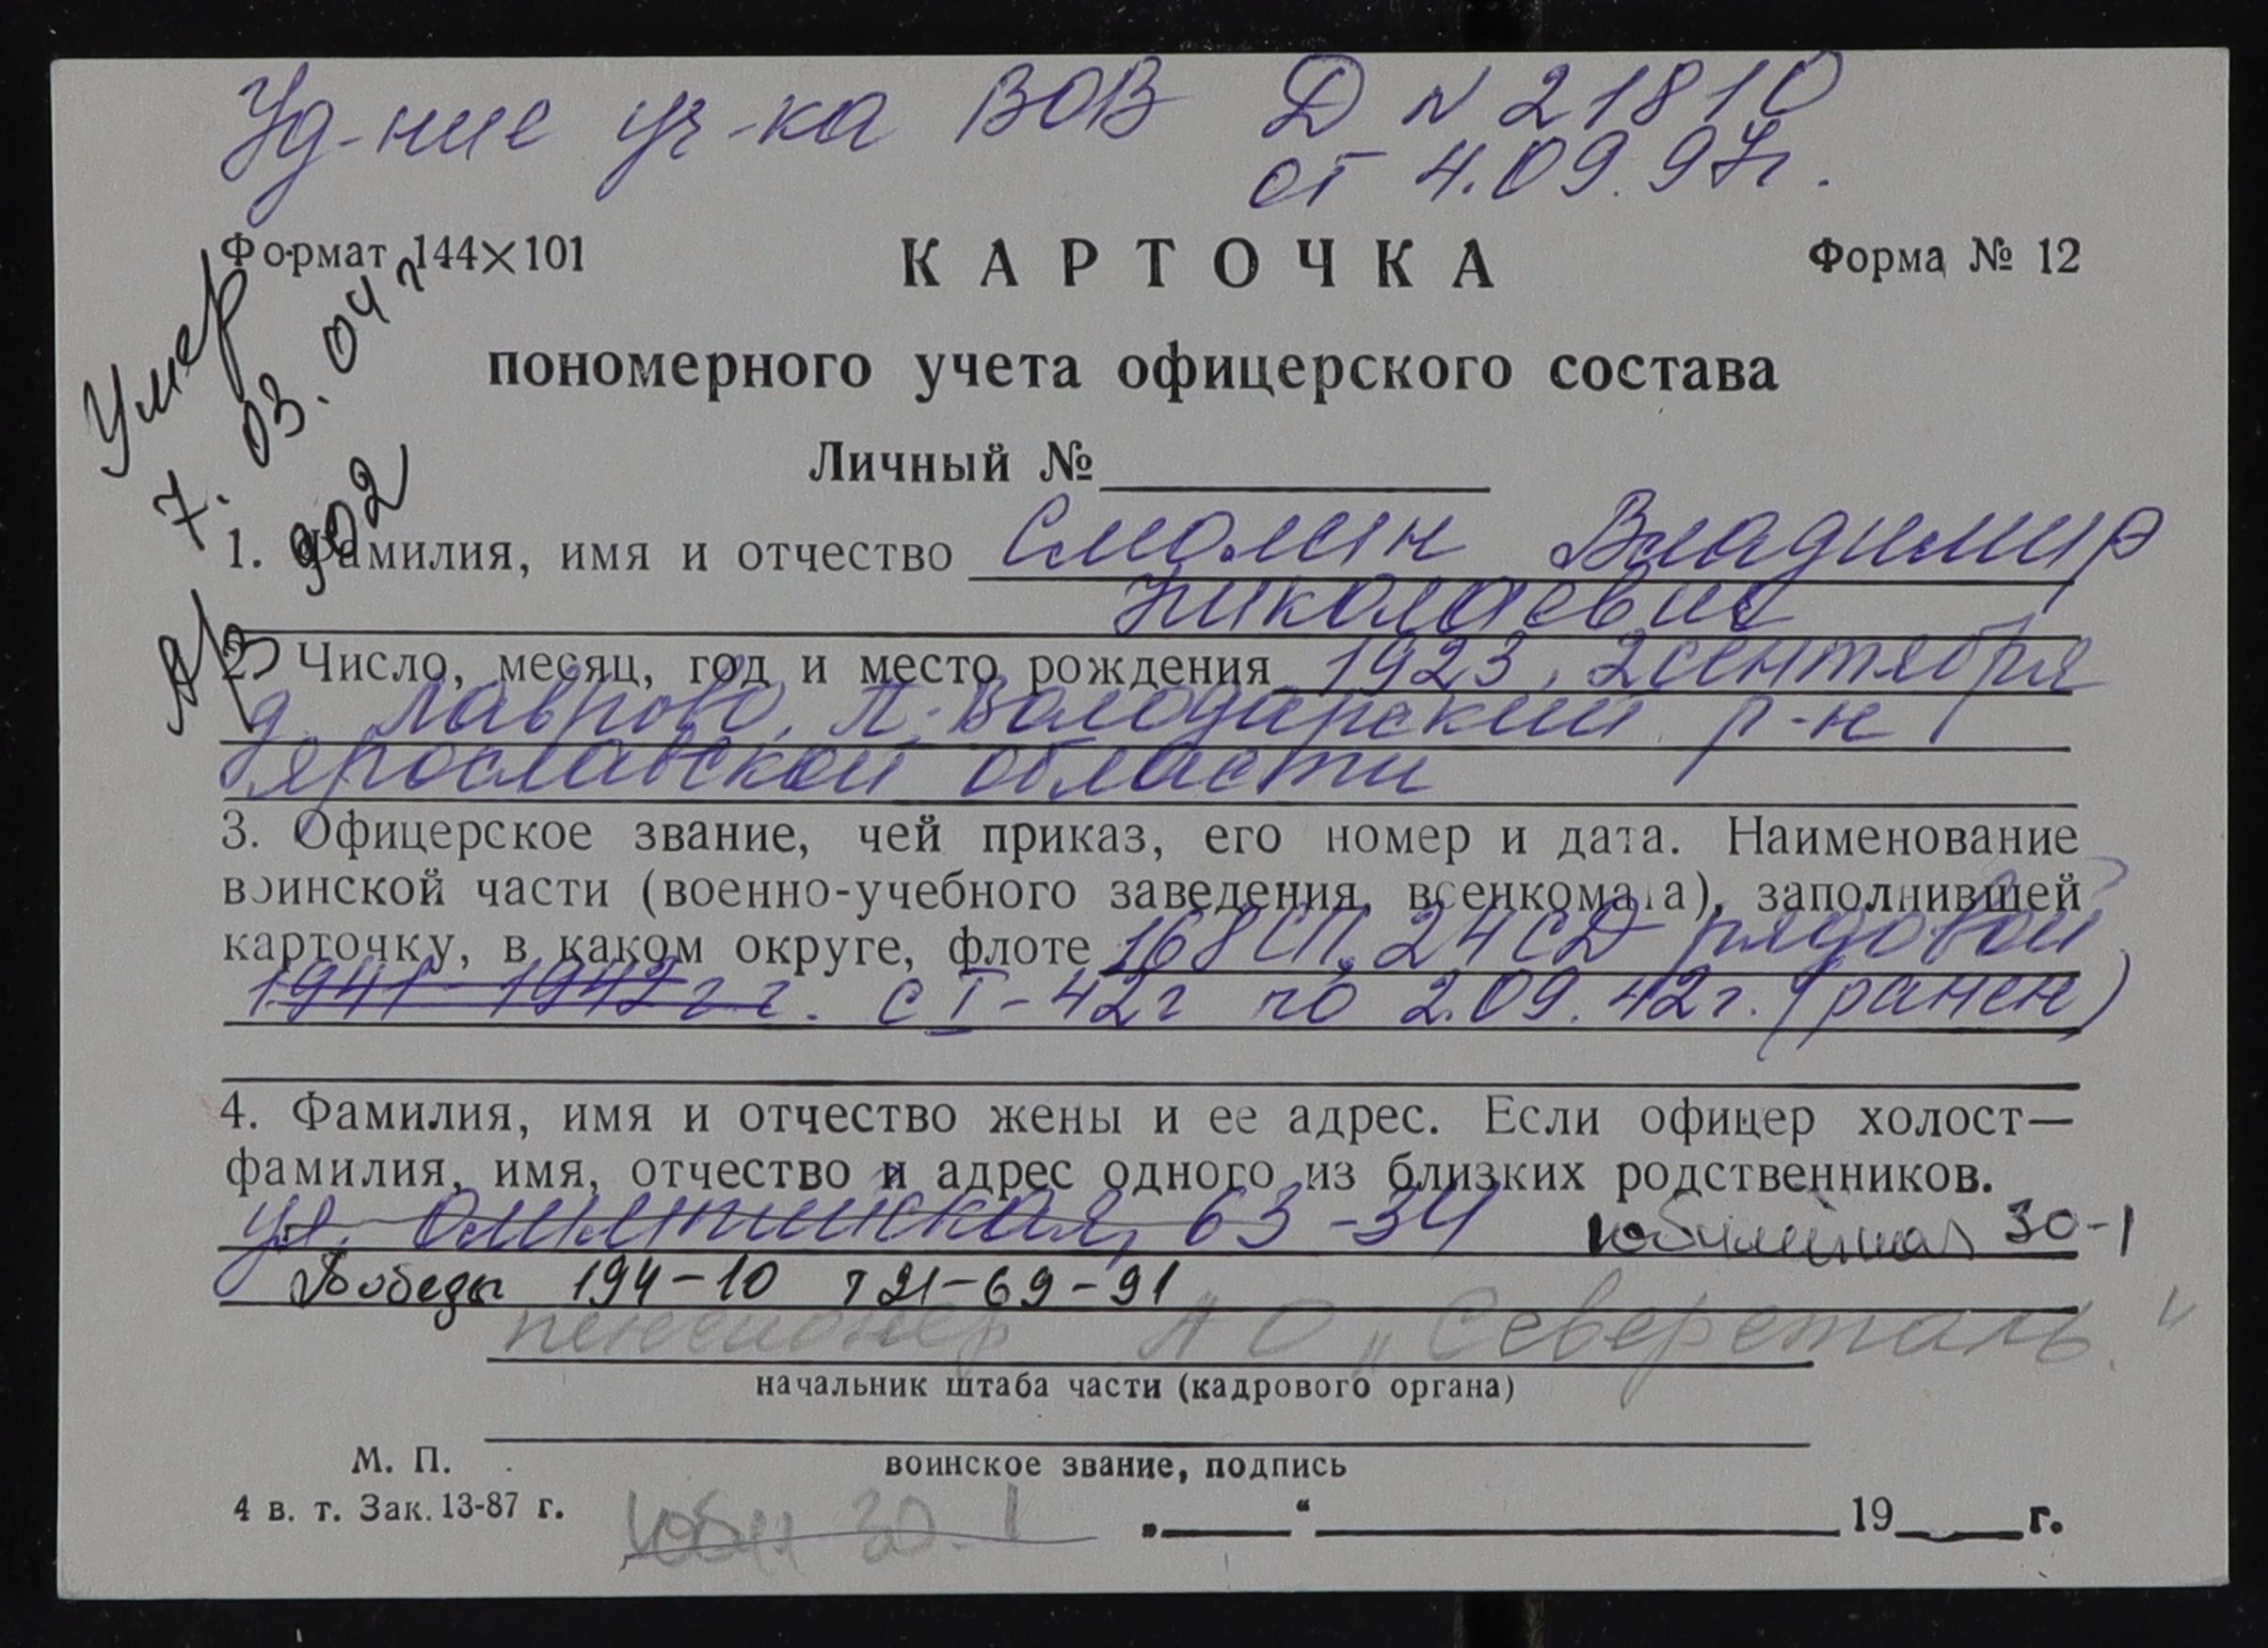 Уд-ние уч-ка ВОВ Д N 21810
от 4.09.97г.
Формат 144×101
КАРТОЧКА
Форма № 12
Умер
7. 03. 04 г
пономерного учета офицерского состава
Личный №
1. Фамилия, имя и отчество Смолин Владимир
Николаевич
2. Число, месяц, год и место рождения 1923, 2 сентября
д. Лаврово, П-Володарский р-н
Ярославской области
3. Офицерское звание, чей приказ, его номер и дата. Наименование
воинской части (военно-учебного заведения, военкомата), заполнившей
карточку, в каком округе, флоте 168 СП, 24 СД рядовой
1941-1942 гг. с I-42г по 2.09.42г. (ранен)
4. Фамилия, имя и отчество жены и ее адрес. Если офицер холост—
фамилия, имя, отчество и адрес одного из близких родственников.
ул. Олимпийская, 63-34 Юбилейная 30-1
Победы 194-10 т 21-69-91
пенсионер АО „Северсталь"
начальник штаба части (кадрового органа)
М. П.
воинское звание, подпись
4 в. т. Зак. 13-87 г.
Юбил 30-1
„ “ 19 г.